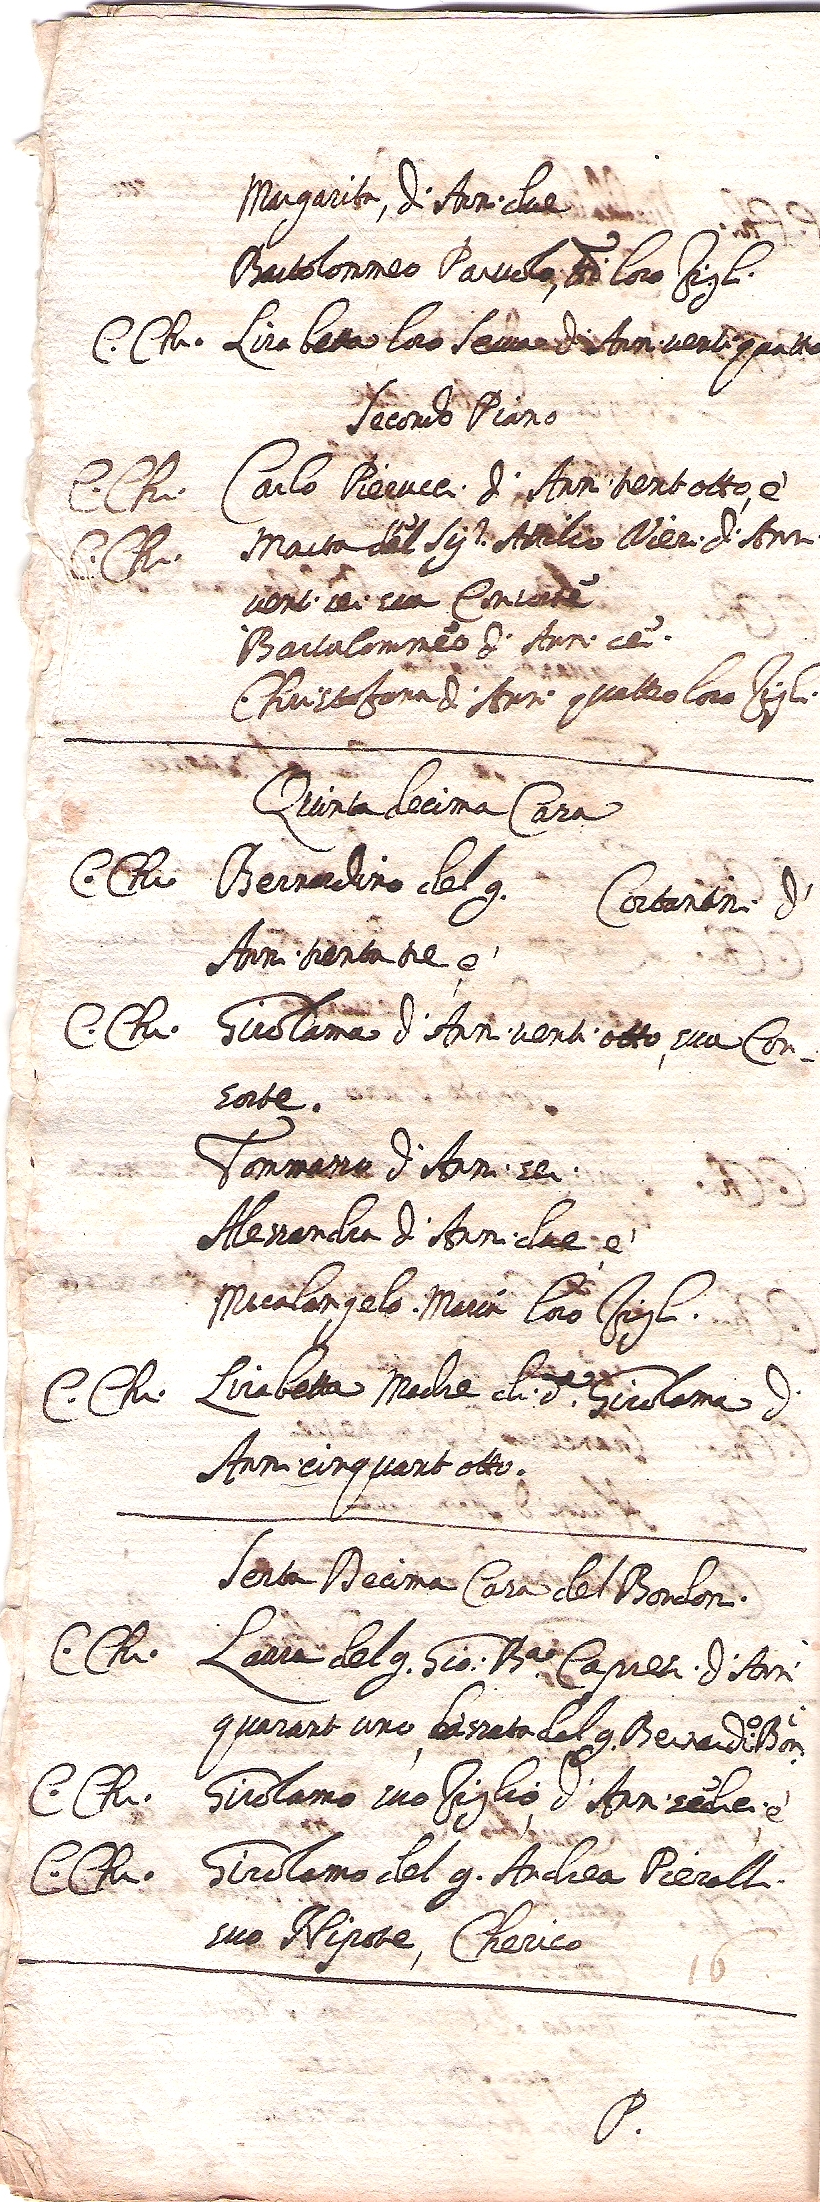 Margarita, d'Anni due
Bartolommeo Parvolo, loro figli.
C. Chr. Lisabetta loro Serva d'Anni venti quattro
Secondo Piano
C. Chr. Carlo Pierucci d'Anni trent otto, e'
C. Chr. Marta del Sig.r Attilio Nieri d'Anni
venti sei sua Consorte
Bartolommeo d'Anni sei.
Christofana d'Anni quattro loro figli.
Quinta decima Casa
C. Chr. Bernardino del q. Costantini d'
Anni trenta tre, e'
C. Chr. Girolama d'Anni venti otto, sua Con-
sorte.
Tommaso d'Anni sei.
Alessandra d'Anni due, e'
Micalangelo Maria loro figli.
C. Chr. Lisabetta Madre di d.a Girolama d'
Anni cinquant otto.
Sesta Decima Casa del Bondoni.
C. Chr. Laura del q. Gio: B.a Capresi d'Anni
quarant uno, lassata del q. Bernard.o Bon.
C. Chr. Girolamo suo figlio, d'Anni sedici, e'
C. Chr. Girolamo del q. Andrea Pieralli
suo Nipote, Cherico
16
P.